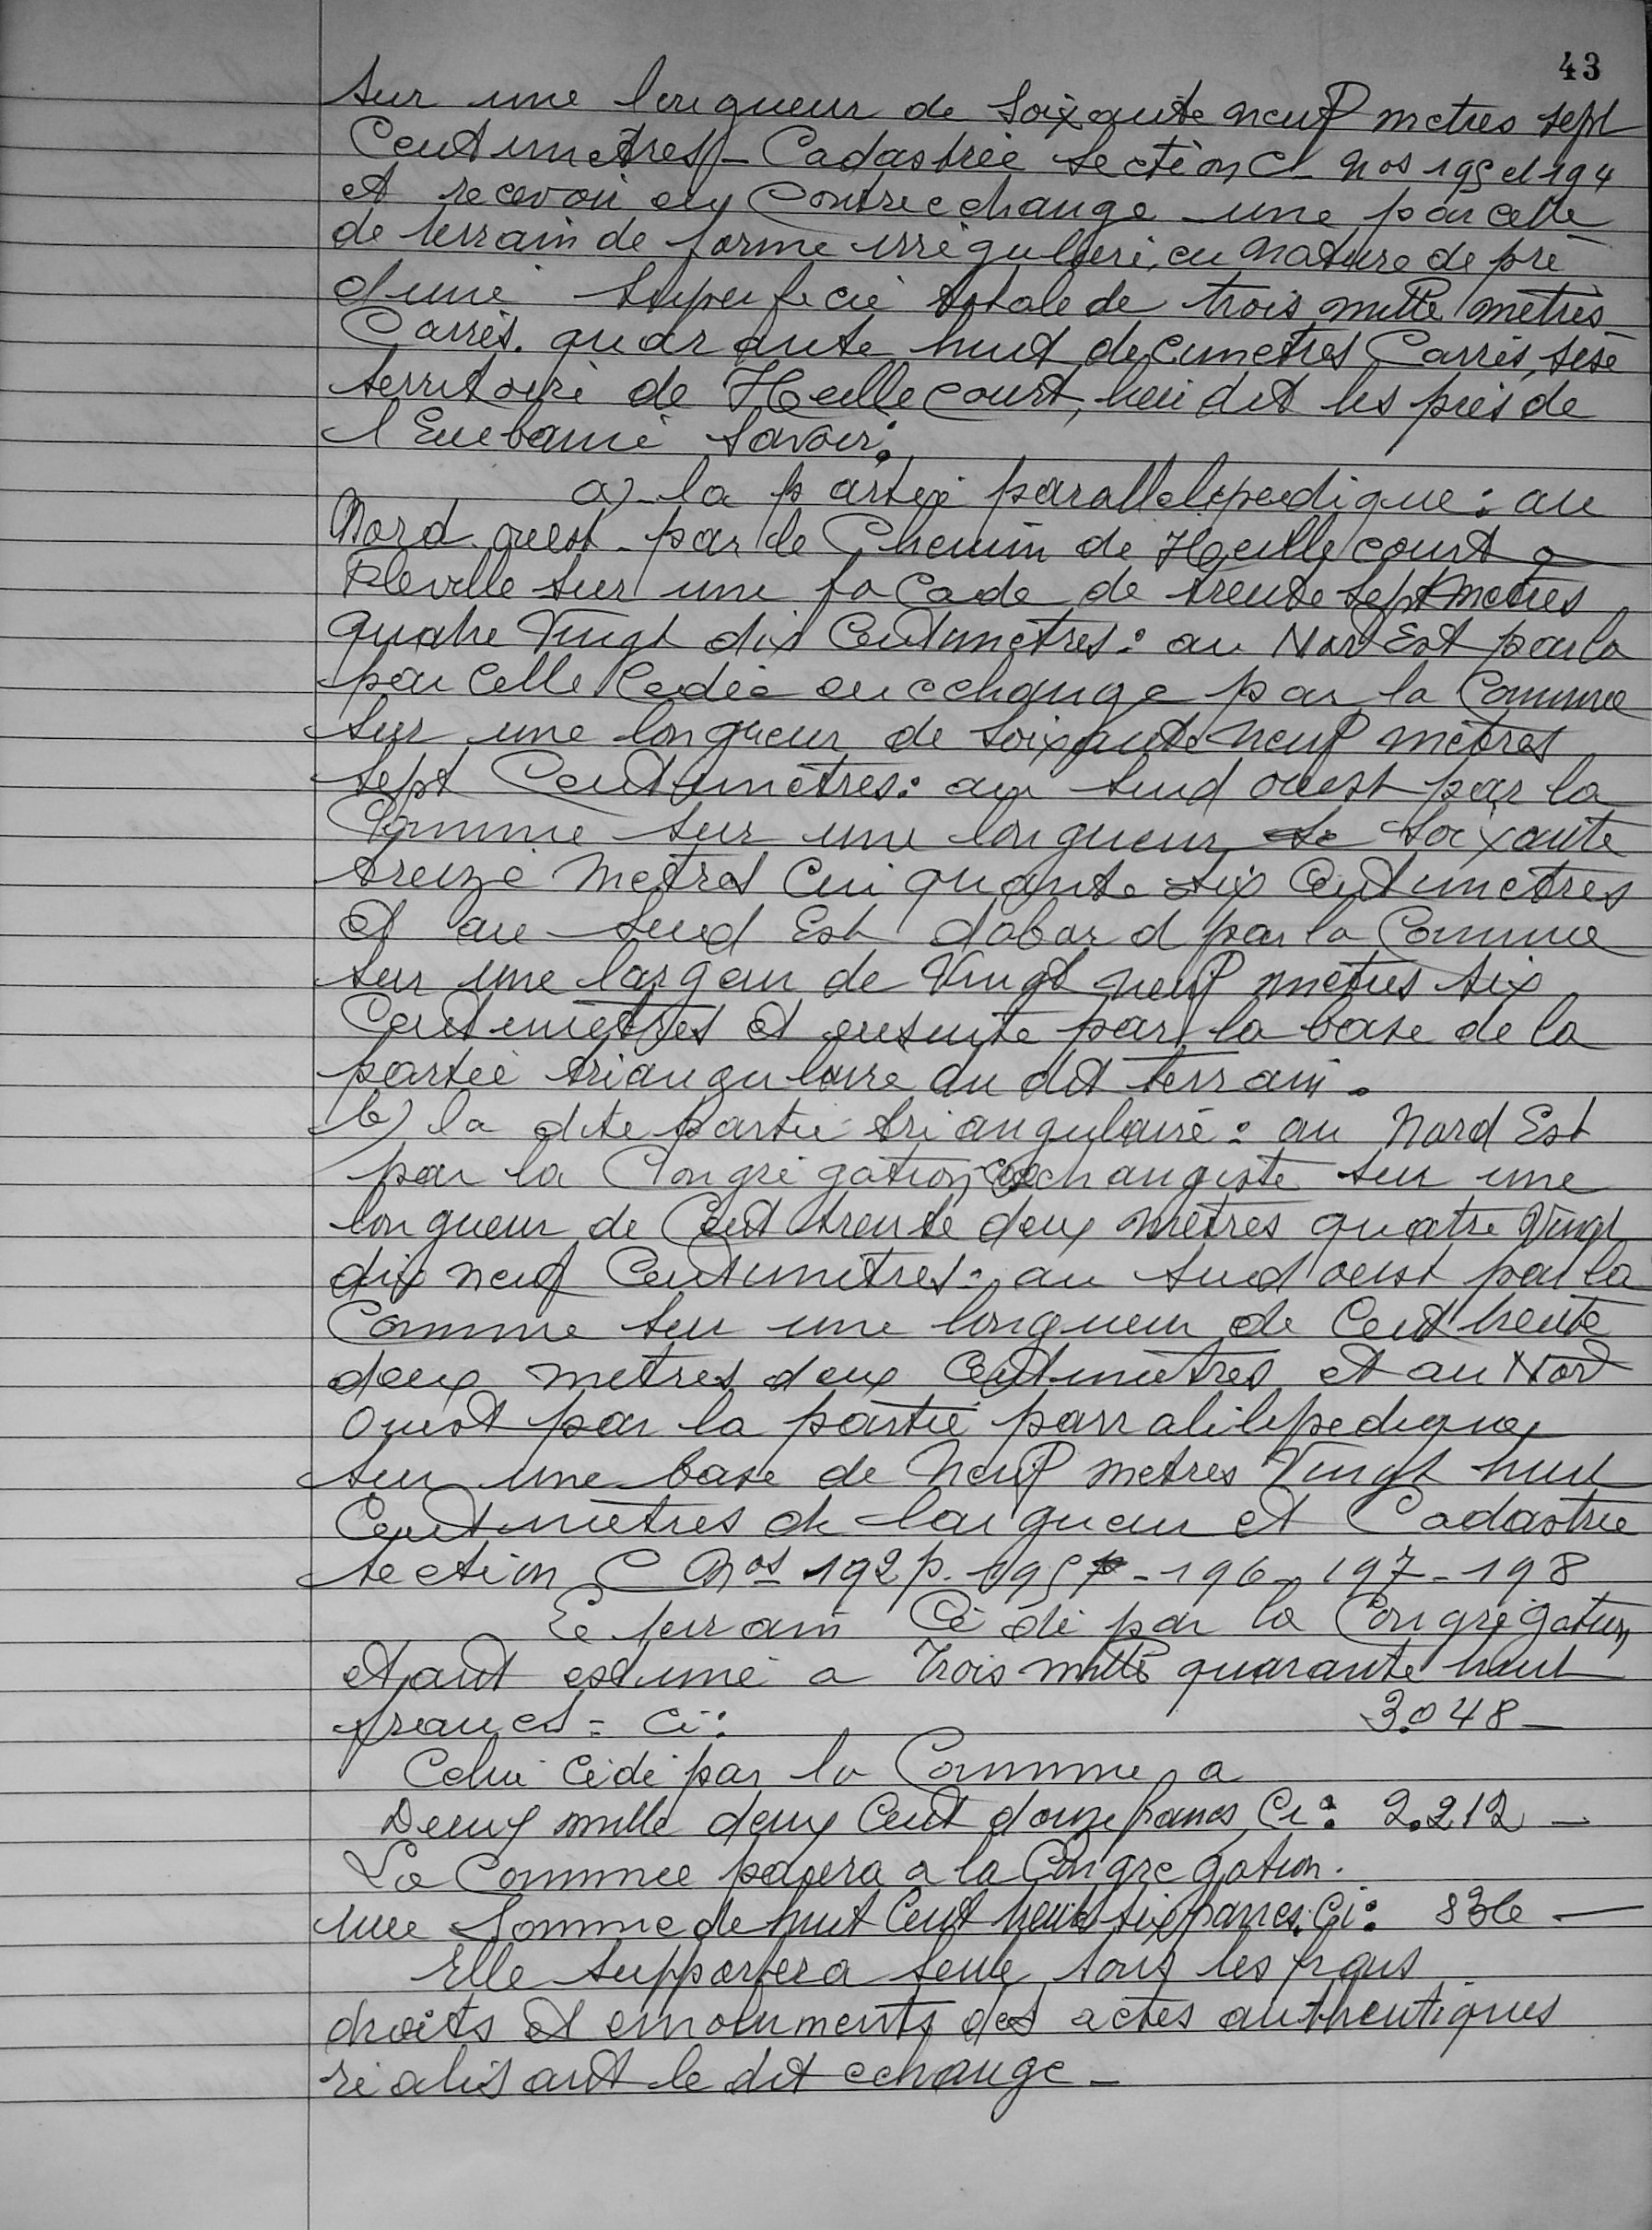 43
sur une longueur de soixante neuf metres sept
Centimetres - Cadastrée section C nos 195 et 194
et recevoir en Contre echange une parcelle
de terrain de forme irrégulière, en nature de pré
d'une superficie totale de trois mille mètres
Carrés. quarante huit decimetres Carrés, sise
territoire de Heillecourt, lieu dit les prés de
l'Embanie savoir:
a) la partie parallelipedique: au
Nord ouest par le Chemin de Heillecourt a
Fléville sur une facade de trente sept metres
quatre Vingt dix Centimetres: au Nord Est par la
parcelle Cedée en echange par la Commune
sur une longueur de soixante neuf mètres
sept Centimètres: au sud ouest par la
Commune sur une longueur de soixante
treize mètres Cinquante six Centimetres
et au sud Est d'abord par la Commune
sur une largeur de Vingt neuf metres six
Centimètres et ensuite par la base de la
partie triangulaire du dit terrain.
b) la dite partie triangulaire: au Nord Est
par la Congrégation coechangiste sur une
longueur de Cent trente deux mètres quatre Vingt
dix neuf Centimetres: au sud ouest par la
Commune sur une longueur de Cent trente
deux metres deux Centimètres et au Nord
Ouest par la partie parralilipedique
sur une base de Neuf metres Vingt huit
Centimètres de largueur et Cadastrée
section C Nos 192 p. 195 p - 196 - 197 - 198
Le terrain Cédé par la Congrégation
etant estimé a Trois mille quarante huit
francs = Ci: 3.048 -
Celui Cédé par la Commune a
Deux mille deux Cent douze francs Ci: 2.212 -
La Commune paiera a la Congregation.
une Somme de huit Cent trente six francs. Ci: 836 -
Elle supportera seule tous les frais
droits et emoluments des actes authentiques
réalisant le dit echange -